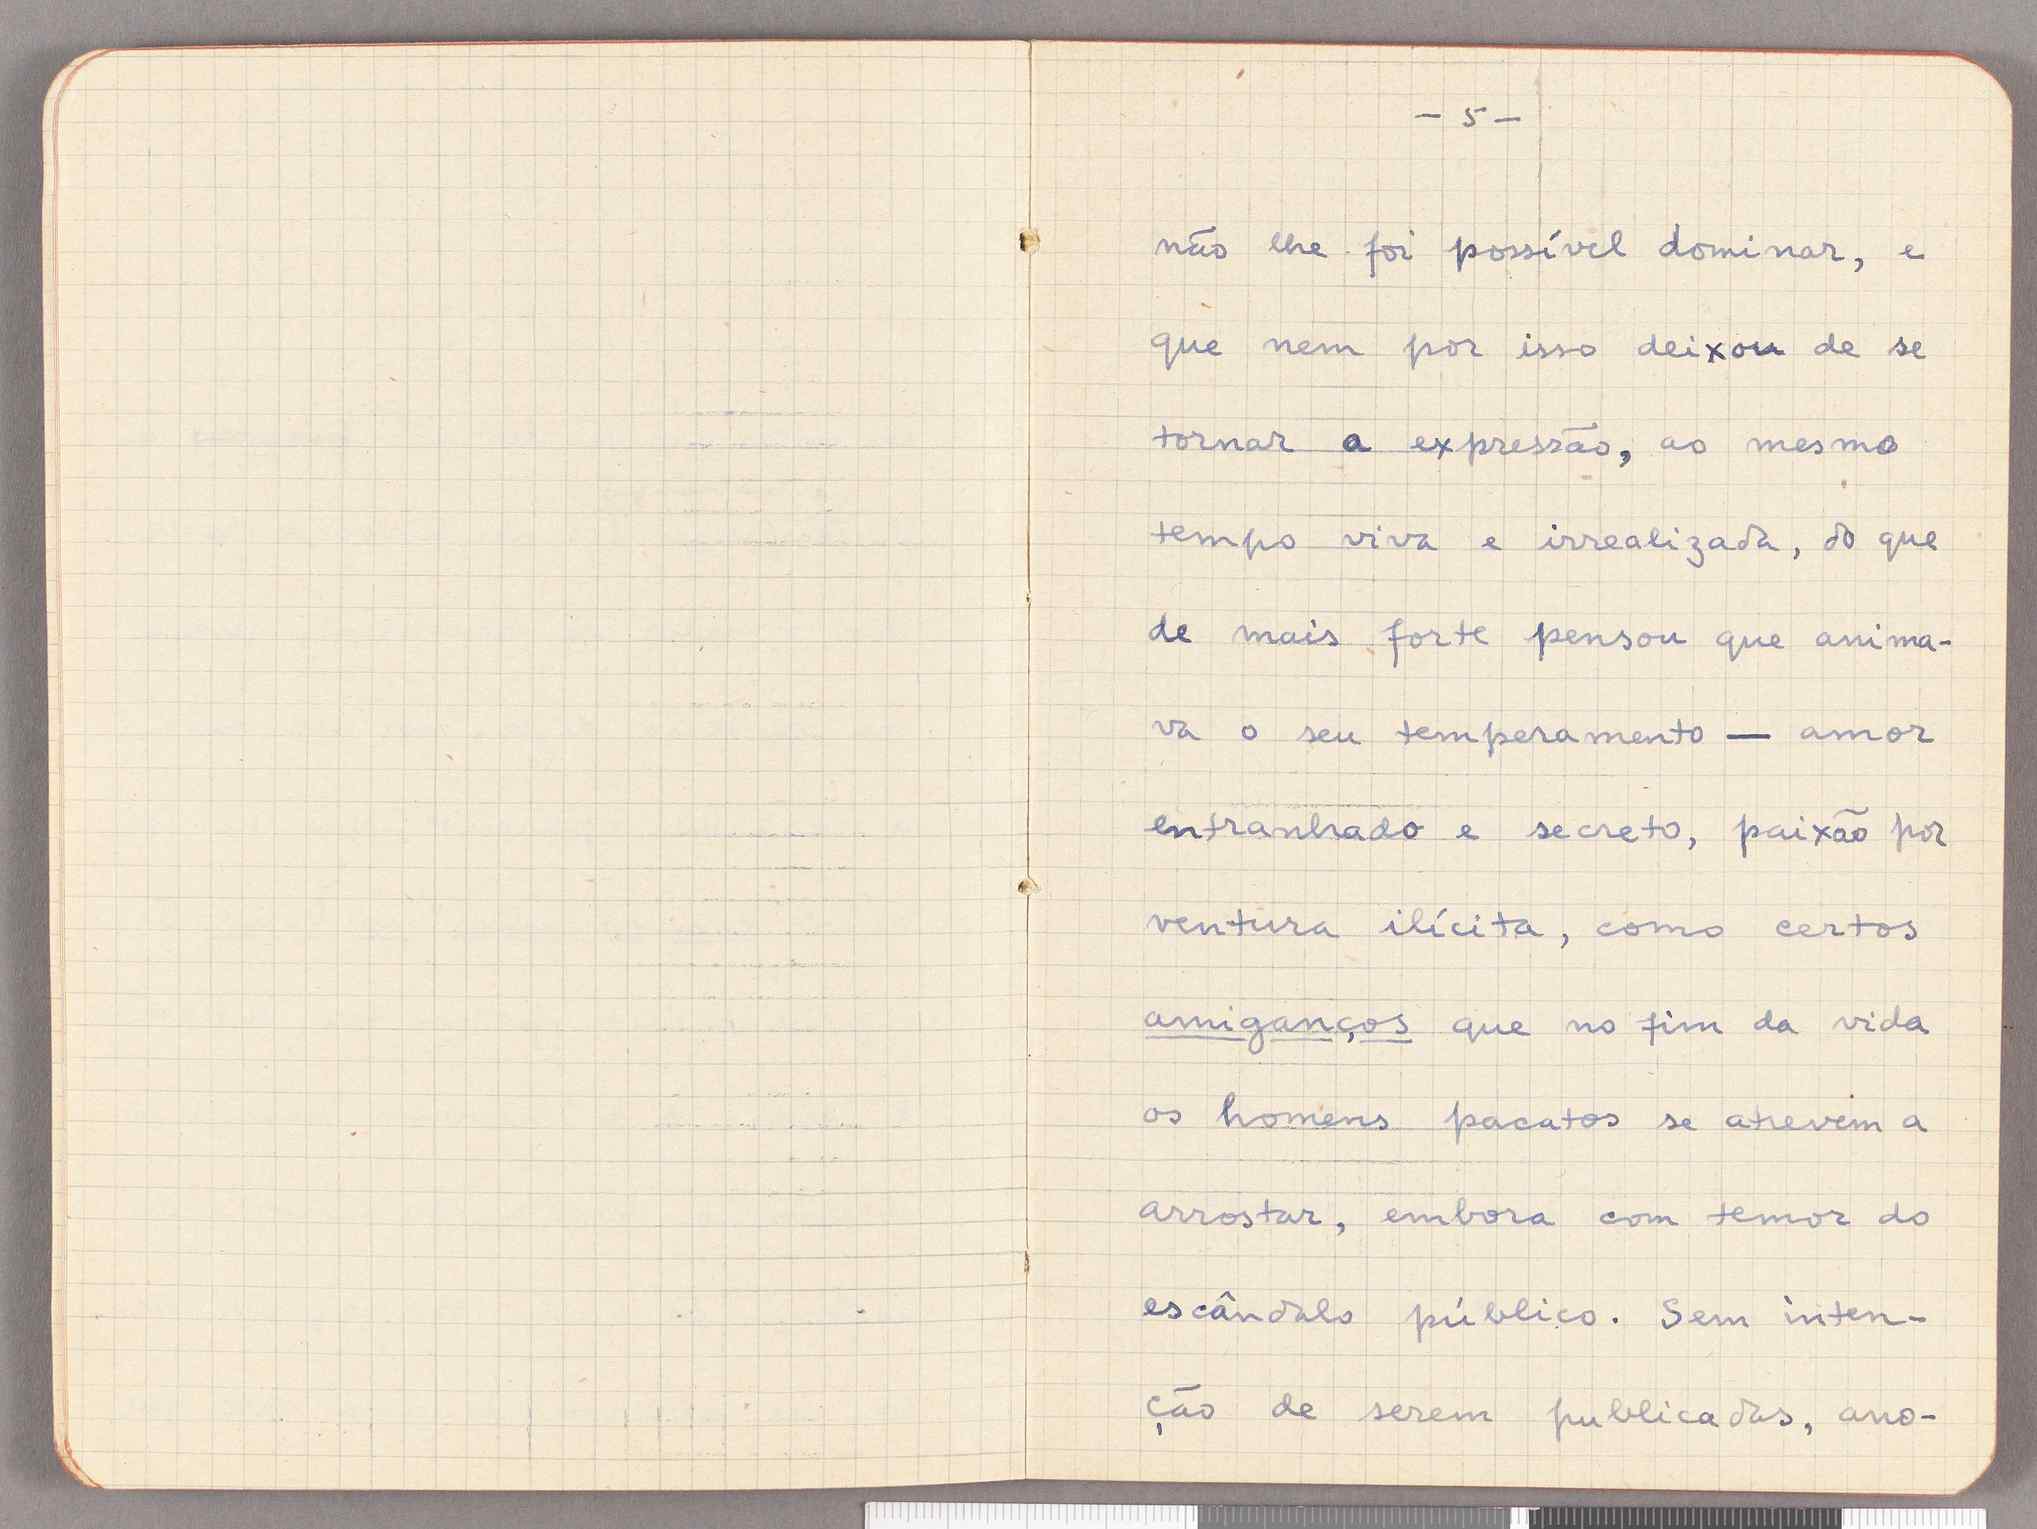 - 5 -
não lhe foi possível dominar, e
que nem por isso deixou de se
tornar a expressão, ao mesmo
tempo viva e irrealizada, do que
de mais forte pensou que anima-
va o seu temperamento — amor
entranhado e secreto, paixão por
ventura ilícita, como certos
amiganços que no fim da vida
os homens pacatos se atrevem a
arrostar, embora com temor do
escândalo público. Sem inten-
ção de serem publicadas, ano-